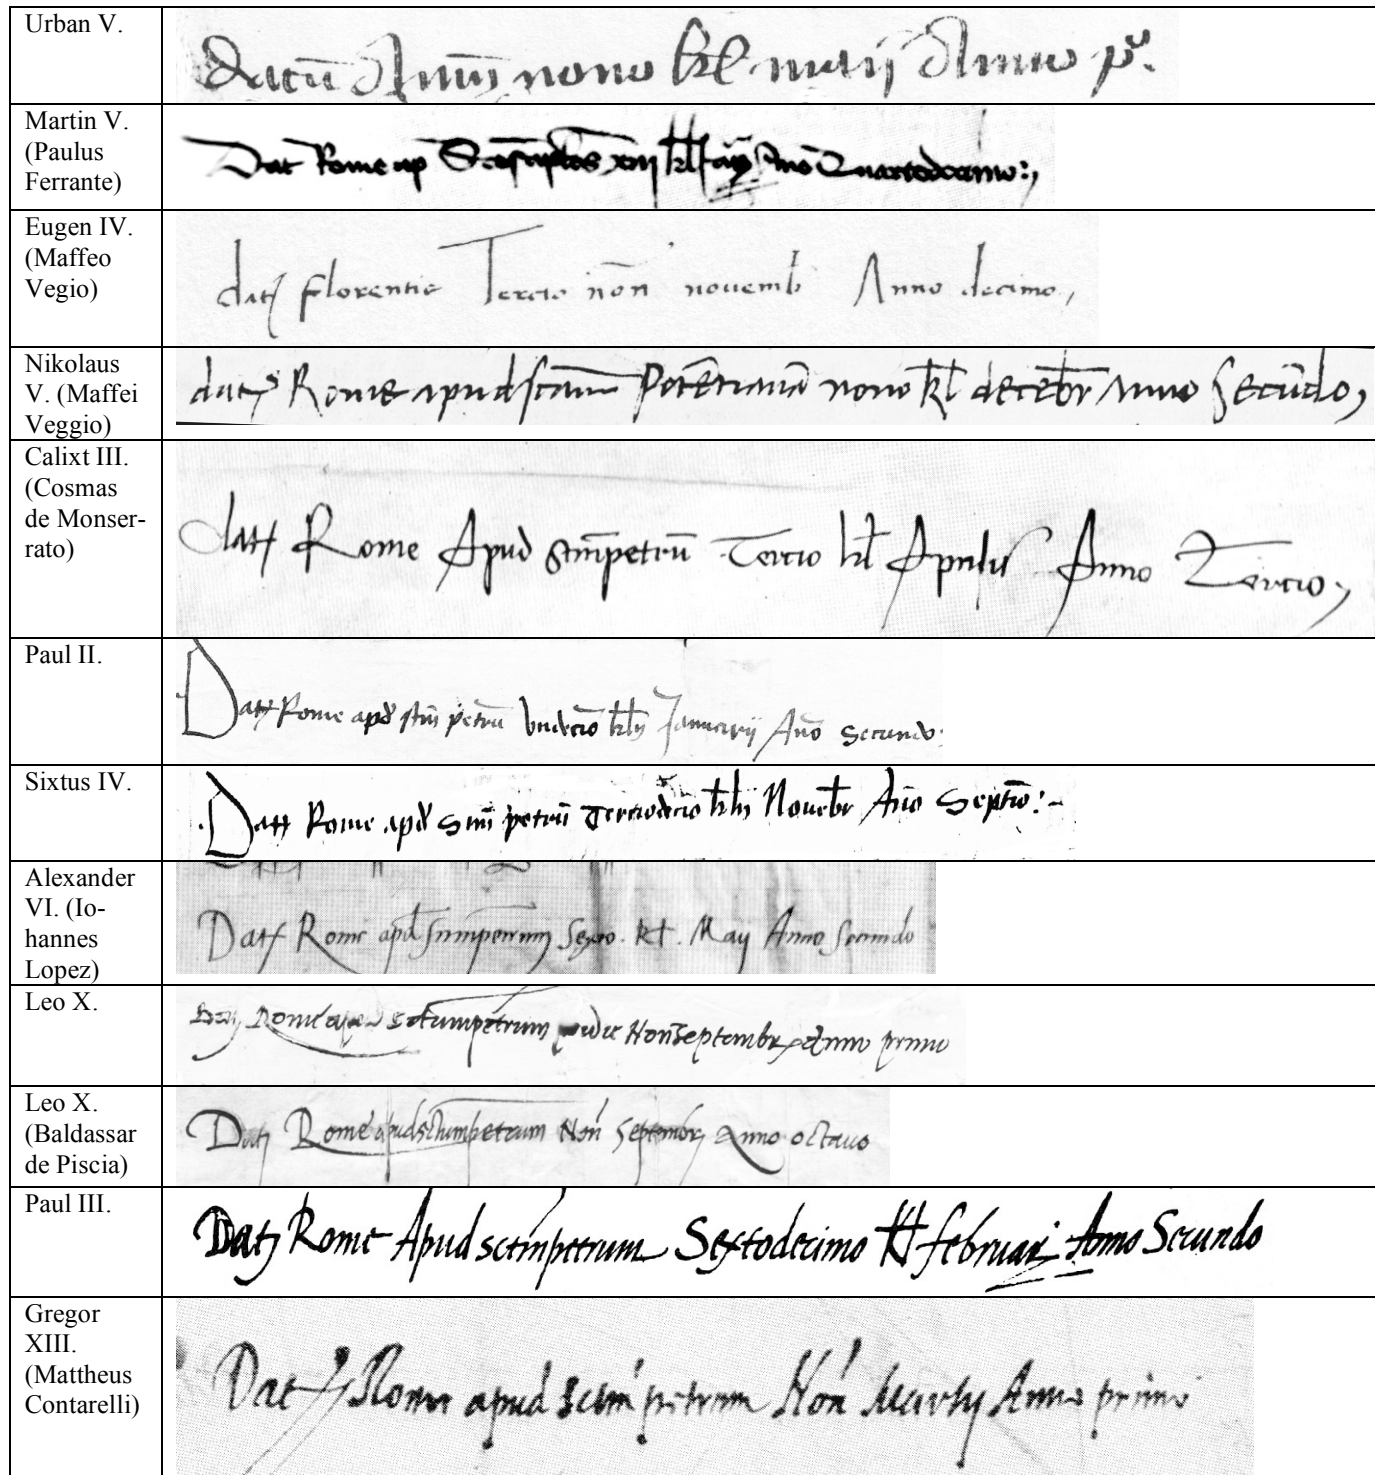 Urban V.
datū Aviñ nono kl maij Anno pº.
Martin V.
(Paulus
Ferrante)
Dat Rome ap kl Anno Quartodecimo
Eugen IV.
(Maffeo
Vegio)
datꝫ florentie Tercio non novemb Anno decimo,
Nikolaus
V. (Maffei
Veggio)
datꝫ Rome apud scam Potētianā nono kl decēbr Anno Secūdo,
Calixt III.
(Cosmas
de Monser-
rato)
datꝫ Rome Apud scm̄petrū Tercio kl Aprilis Anno Tercio,
Paul II.
Datꝫ Rome apd stm petrū Undecīo kl Januarij Año Secundo:
Sixtus IV.
Datꝫ Rome apd Stm petrū Terciodecīo kl Novēbr Año Septīo:-
Alexander
VI. (Io-
hannes
Lopez)
Datꝫ Rome apd scmpetrum Sexto. kl. Maij Anno Secundo
Leo X.
Datꝫ Rome apud sctumpetrum pridie Non Septembr Anno primo
Leo X.
(Baldassar
de Piscia)
Datꝫ Rome apud sctumpetrum Non Septembr Anno octavo
Paul III.
Datꝫ Rome Apud sctmpetrum Sextodecimo kl februarĳ Anno Secundo
Gregor
XIII.
(Mattheus
Contarelli)
Datꝫ Rome apud sctm petrum Non Martij Anno primo